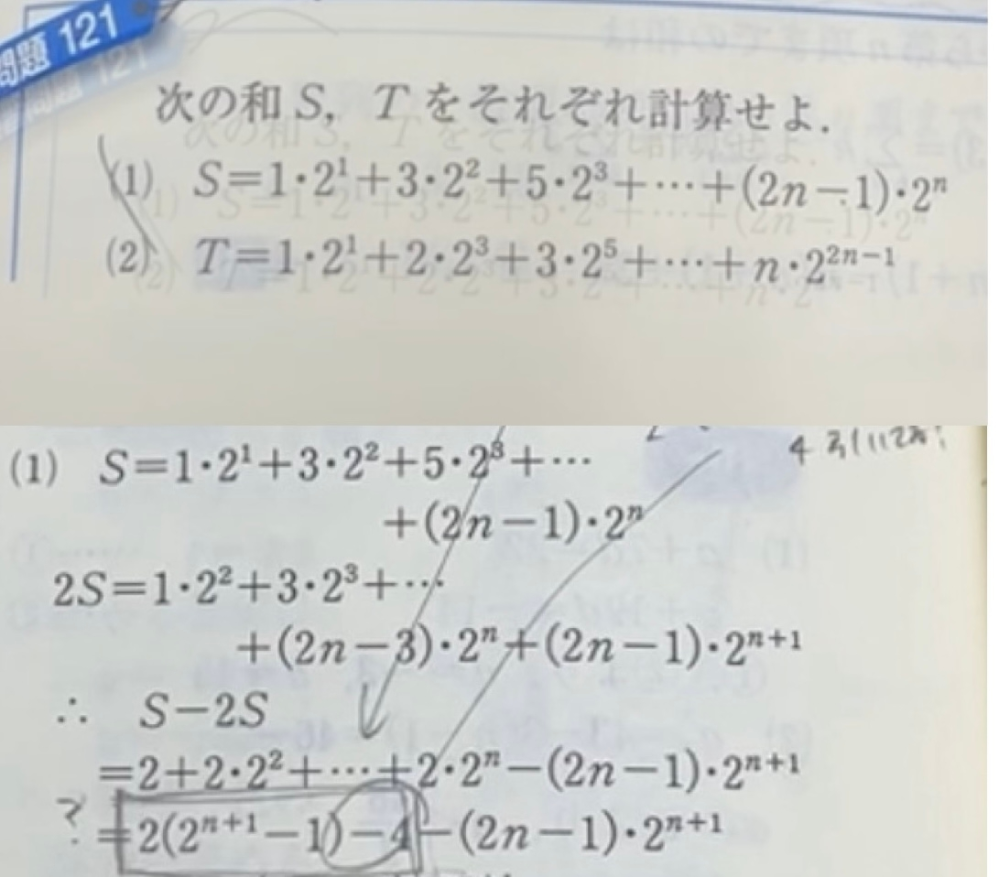 問題 121
次の和 S, T をそれぞれ計算せよ.
(1) S=1・2¹+3・2²+5・2³+⋯+(2n−1)・2ⁿ
(2) T=1・2¹+2・2³+3・2⁵+⋯+n・2²ⁿ⁻¹
(1) S=1・2¹+3・2²+5・2³+⋯
+(2n−1)・2ⁿ
2S=1・2²+3・2³+⋯
+(2n−3)・2ⁿ+(2n−1)・2ⁿ⁺¹
∴ S−2S
=2+2・2²+⋯+2・2ⁿ−(2n−1)・2ⁿ⁺¹
? =2(2ⁿ⁺¹−1)−4−(2n−1)・2ⁿ⁺¹